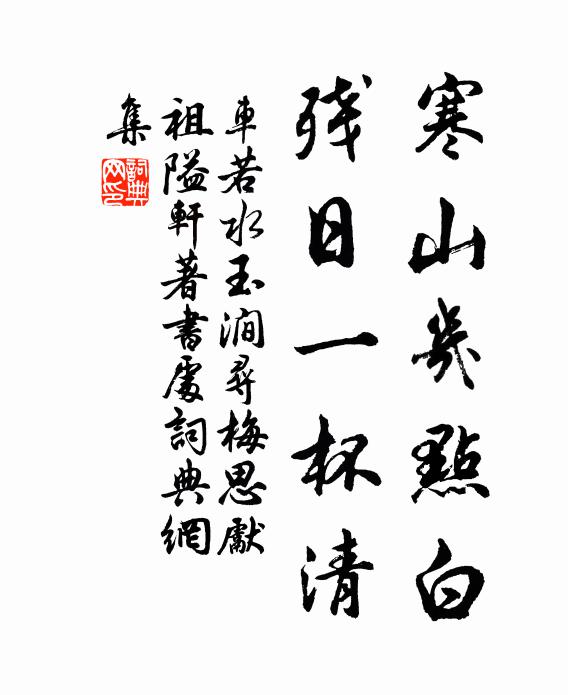 寒山幾點白
残日一杯清
車若水玉澗尋梅思獻
祖隘軒著書處詞典網
集
詞典網印